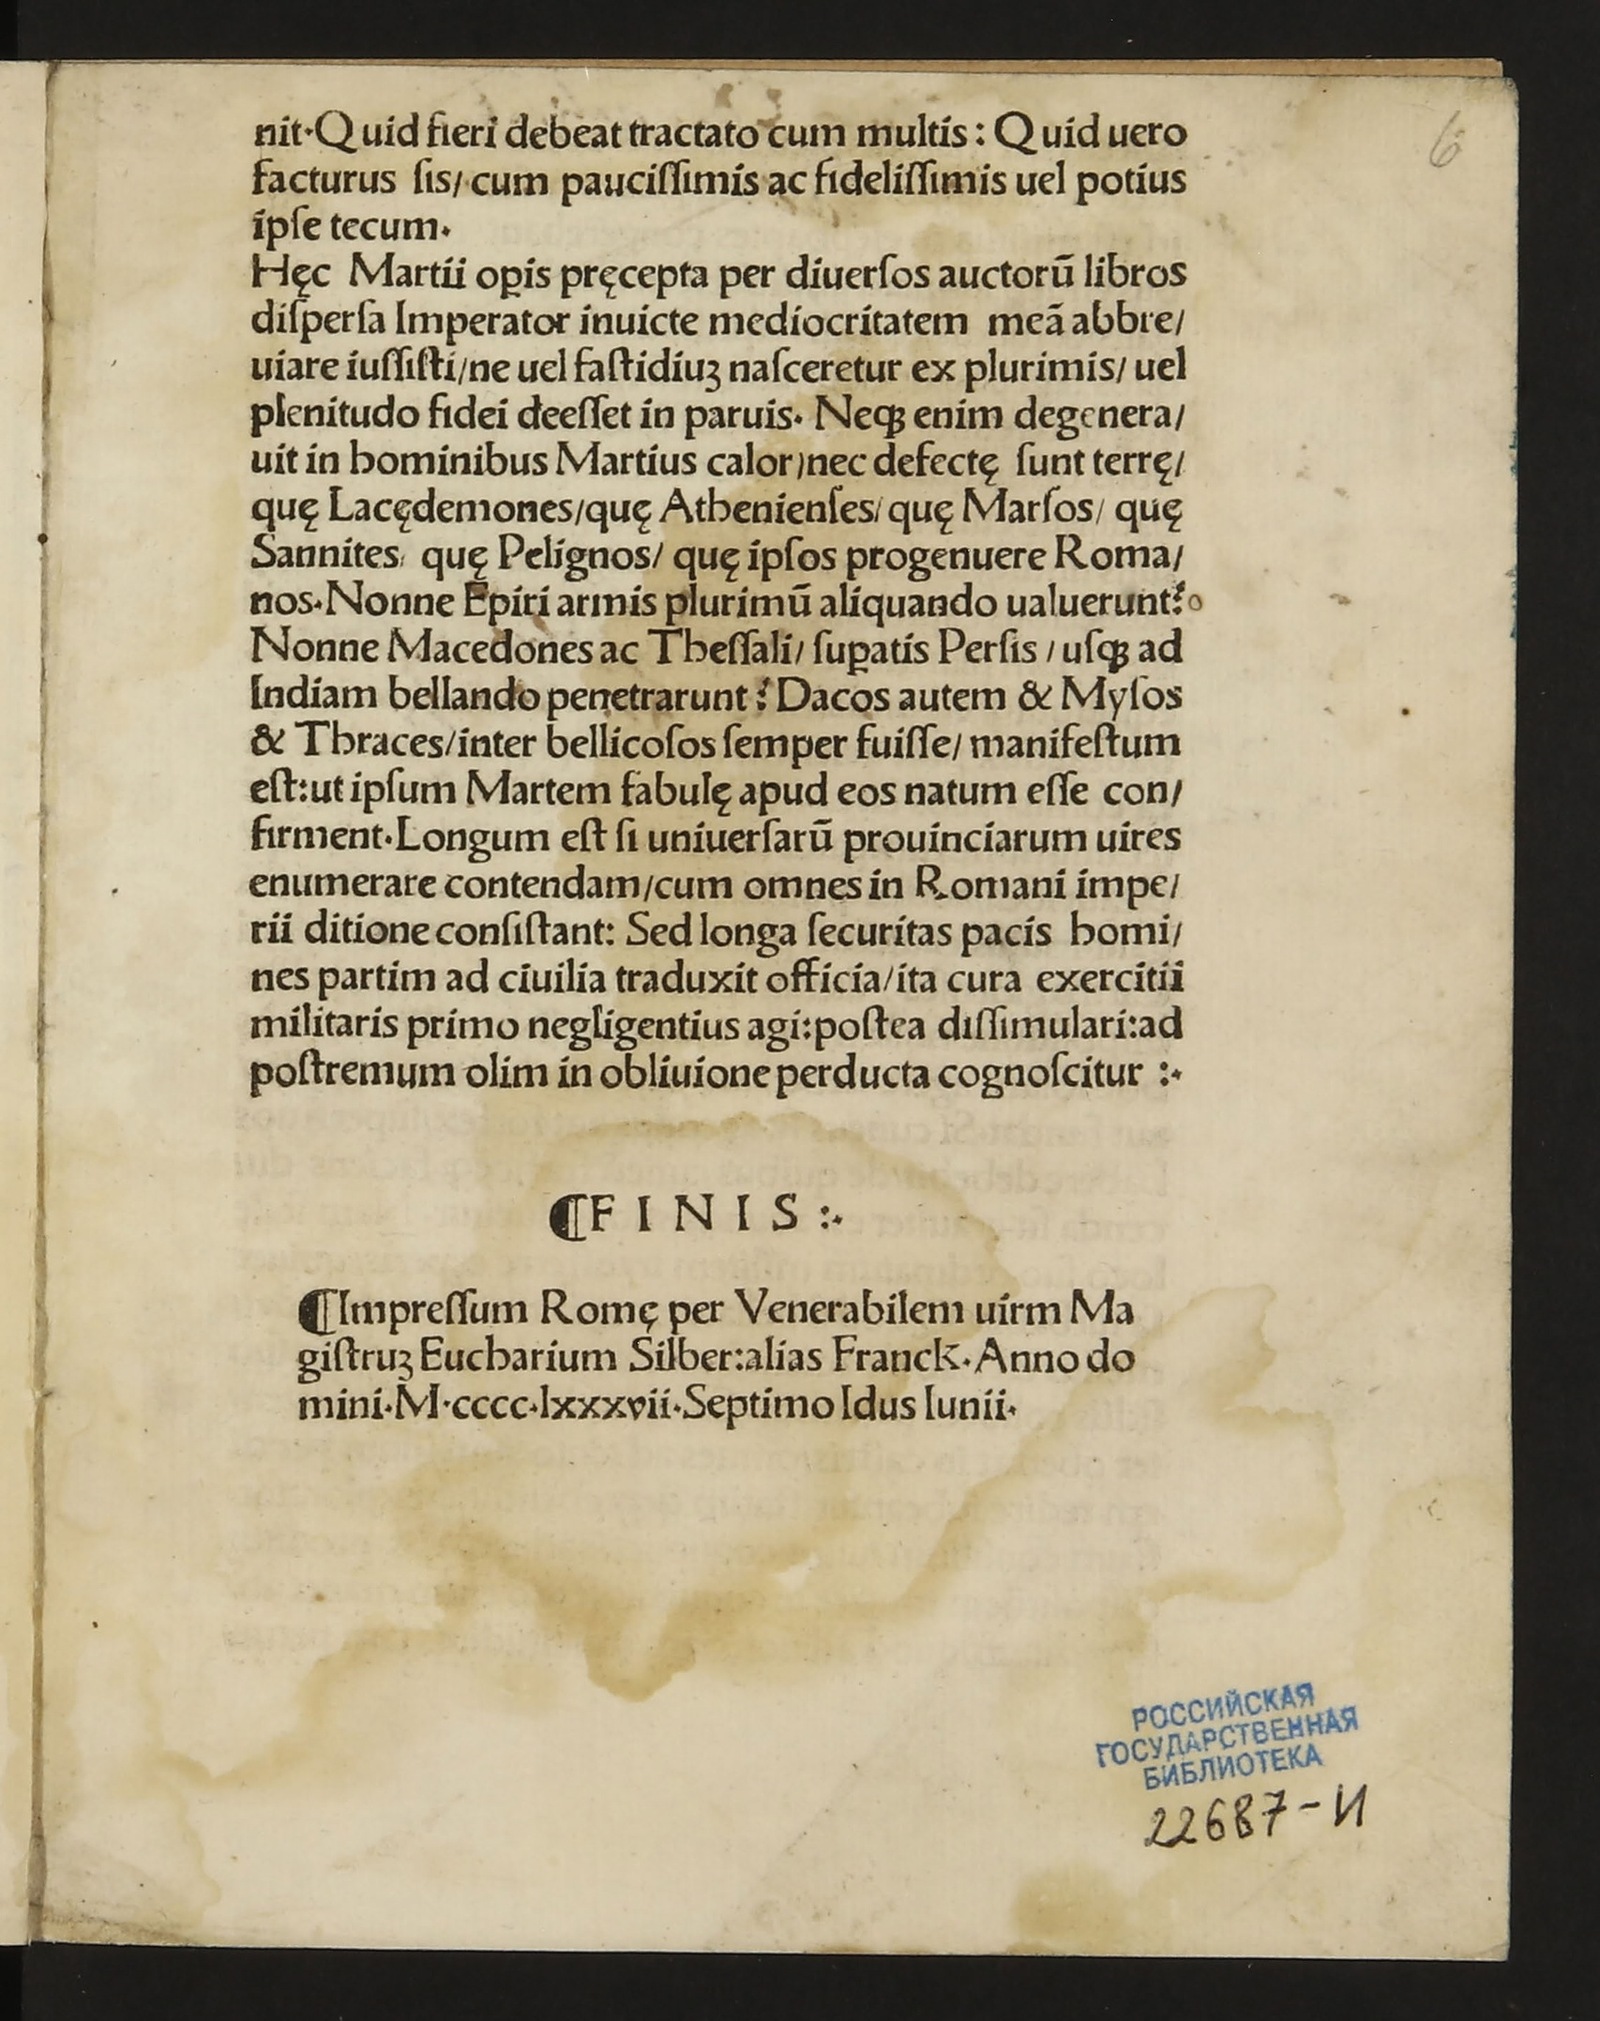 6
nit·Quid fieri debeat tractato cum multis: Quid uero
facturus ſis/cum pauciſſimis ac fideliſſimis uel potius
ipſe tecum.
Hęc Martii opis pręcepta per diuerſos auctorū libros
diſperſa Imperator inuicte mediocritatem meā abbre/
uiare iuſſiſti/ne uel faſtidiuꝫ naſceretur ex plurimis/ uel
plenitudo fidei deeſſet in paruis. Neqꝫ enim degenera/
uit in hominibus Martius calor)nec defectę ſunt terrę/
quę Lacędemones/quę Athenienſes/quę Marſos/ quę
Sannites/ quę Pelignos/ quę ipſos progenuere Roma/
nos.Nonne Epiri armis plurimū aliquando ualuerunt?
Nonne Macedones ac Theſſali/ ſuꝑatis Perſis /uſqꝫ ad
Indiam bellando penetrarunt? Dacos autem & Myſos
& Thraces/inter bellicoſos ſemper fuiſſe/ manifeſtum
eſt:ut ipſum Martem fabulę apud eos natum eſſe con/
firment.Longum eſt ſi uniuerſarū prouinciarum uires
enumerare contendam/cum omnes in Romani impe/
rii ditione conſiſtant: Sed longa ſecuritas pacis homi/
nes partim ad ciuilia traduxit officia/ita cura exercitii
militaris primo negligentius agi:poſtea diſſimulari:ad
poſtremum olim in obliuione perducta cognoſcitur :·
¶FINIS:·
¶Impreſſum Romę per Venerabilem uirm Ma
giſtruꝫ Eucharium Silber:alias Franck.Anno do
mini.M·cccc·lxxxvii.Septimo Idus Iunii.
РОССИЙСКАЯ
ГОСУДАРСТВЕННАЯ
БИБЛИОТЕКА
22687-И